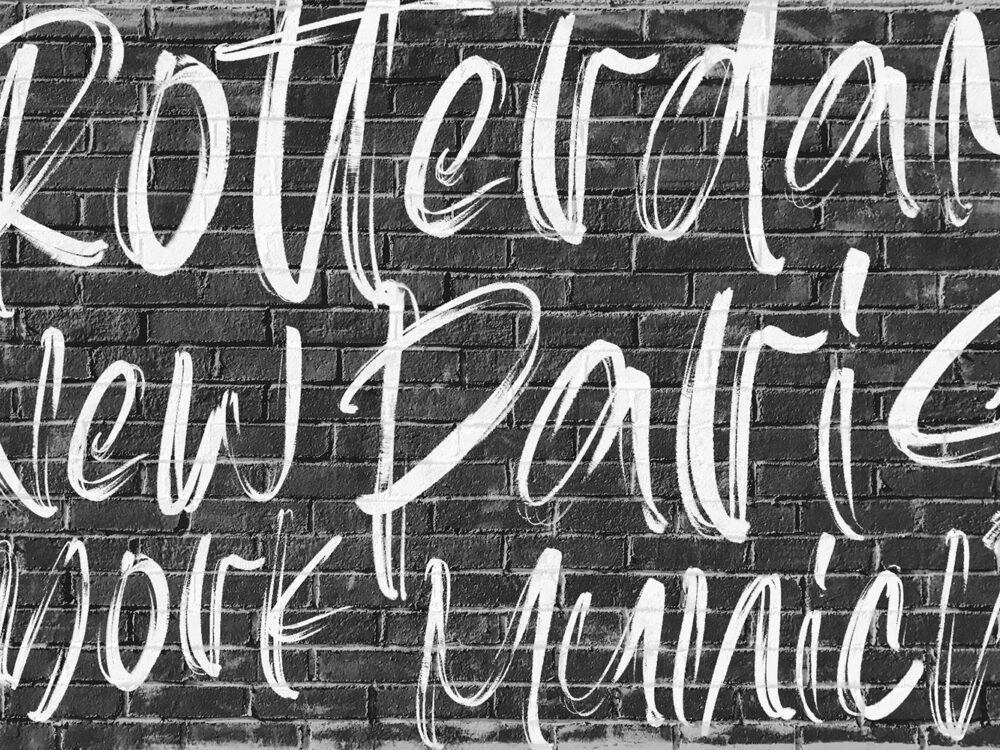 Rotterdam
New Paris
York Munich